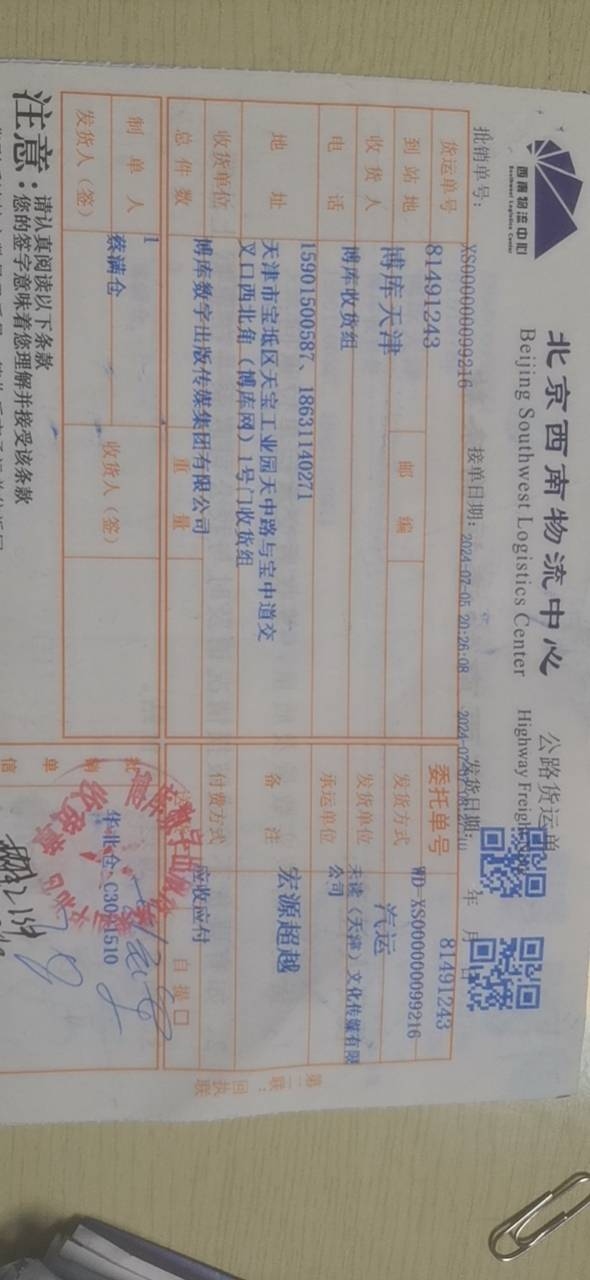 西南物流中心
Southwest Logistics Center
北京西南物流中心 公路货运单
Beijing Southwest Logistics Center Highway Freight
批销单号: XS000000099216 接单日期: 2024-07-05 20:26:08 发货日期: 年 月 日
货运单号 81491243 委托单号 81491243
WD-XS000000099216
到站地 博库天津 邮编 发货方式 汽运
收货人 博库收货组 发货单位 未读（天津）文化传媒有限公司
电话 15901500587、18631140271 承运单位
地址 天津市宝坻区天宝工业园天中路与宝中道交
叉口西北角（博库网）1号门收货组
备注 宏源超越
收货单位 博库数字出版传媒集团有限公司 付费方式 应收应付
总件数 1 重量 自提口
制单人 蔡满仓 收货人（签）
发货人（签）
批销单信
华北仓
第二联：回执联
注意：请认真阅读以下条款
您的签字意味着您理解并接受该条款